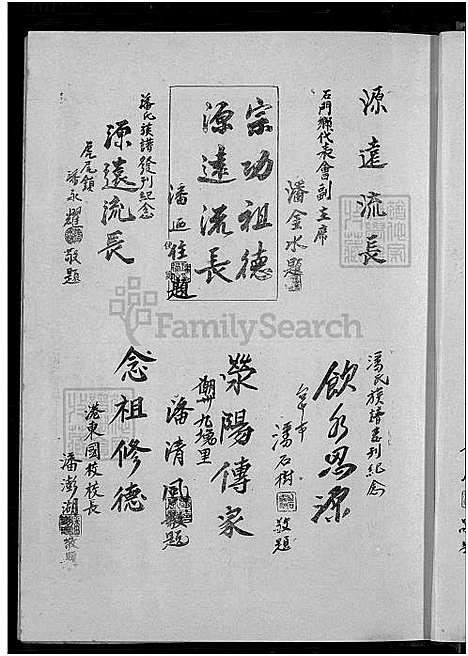 源遠流長
石門鄉代表會副主席
潘金水題
宗功祖德
源遠流長
潘
題
潘氏族譜發刊紀念
源遠流長
虎尾鎮
潘永耀
敬題
潘氏族譜發刊紀念
飲水思源
台中市
潘石樹
敬題
滎陽傳家
潮州九塊里
潘清風
敬題
念祖修德
港東國校校長
潘澎湖
敬題
FamilySearch